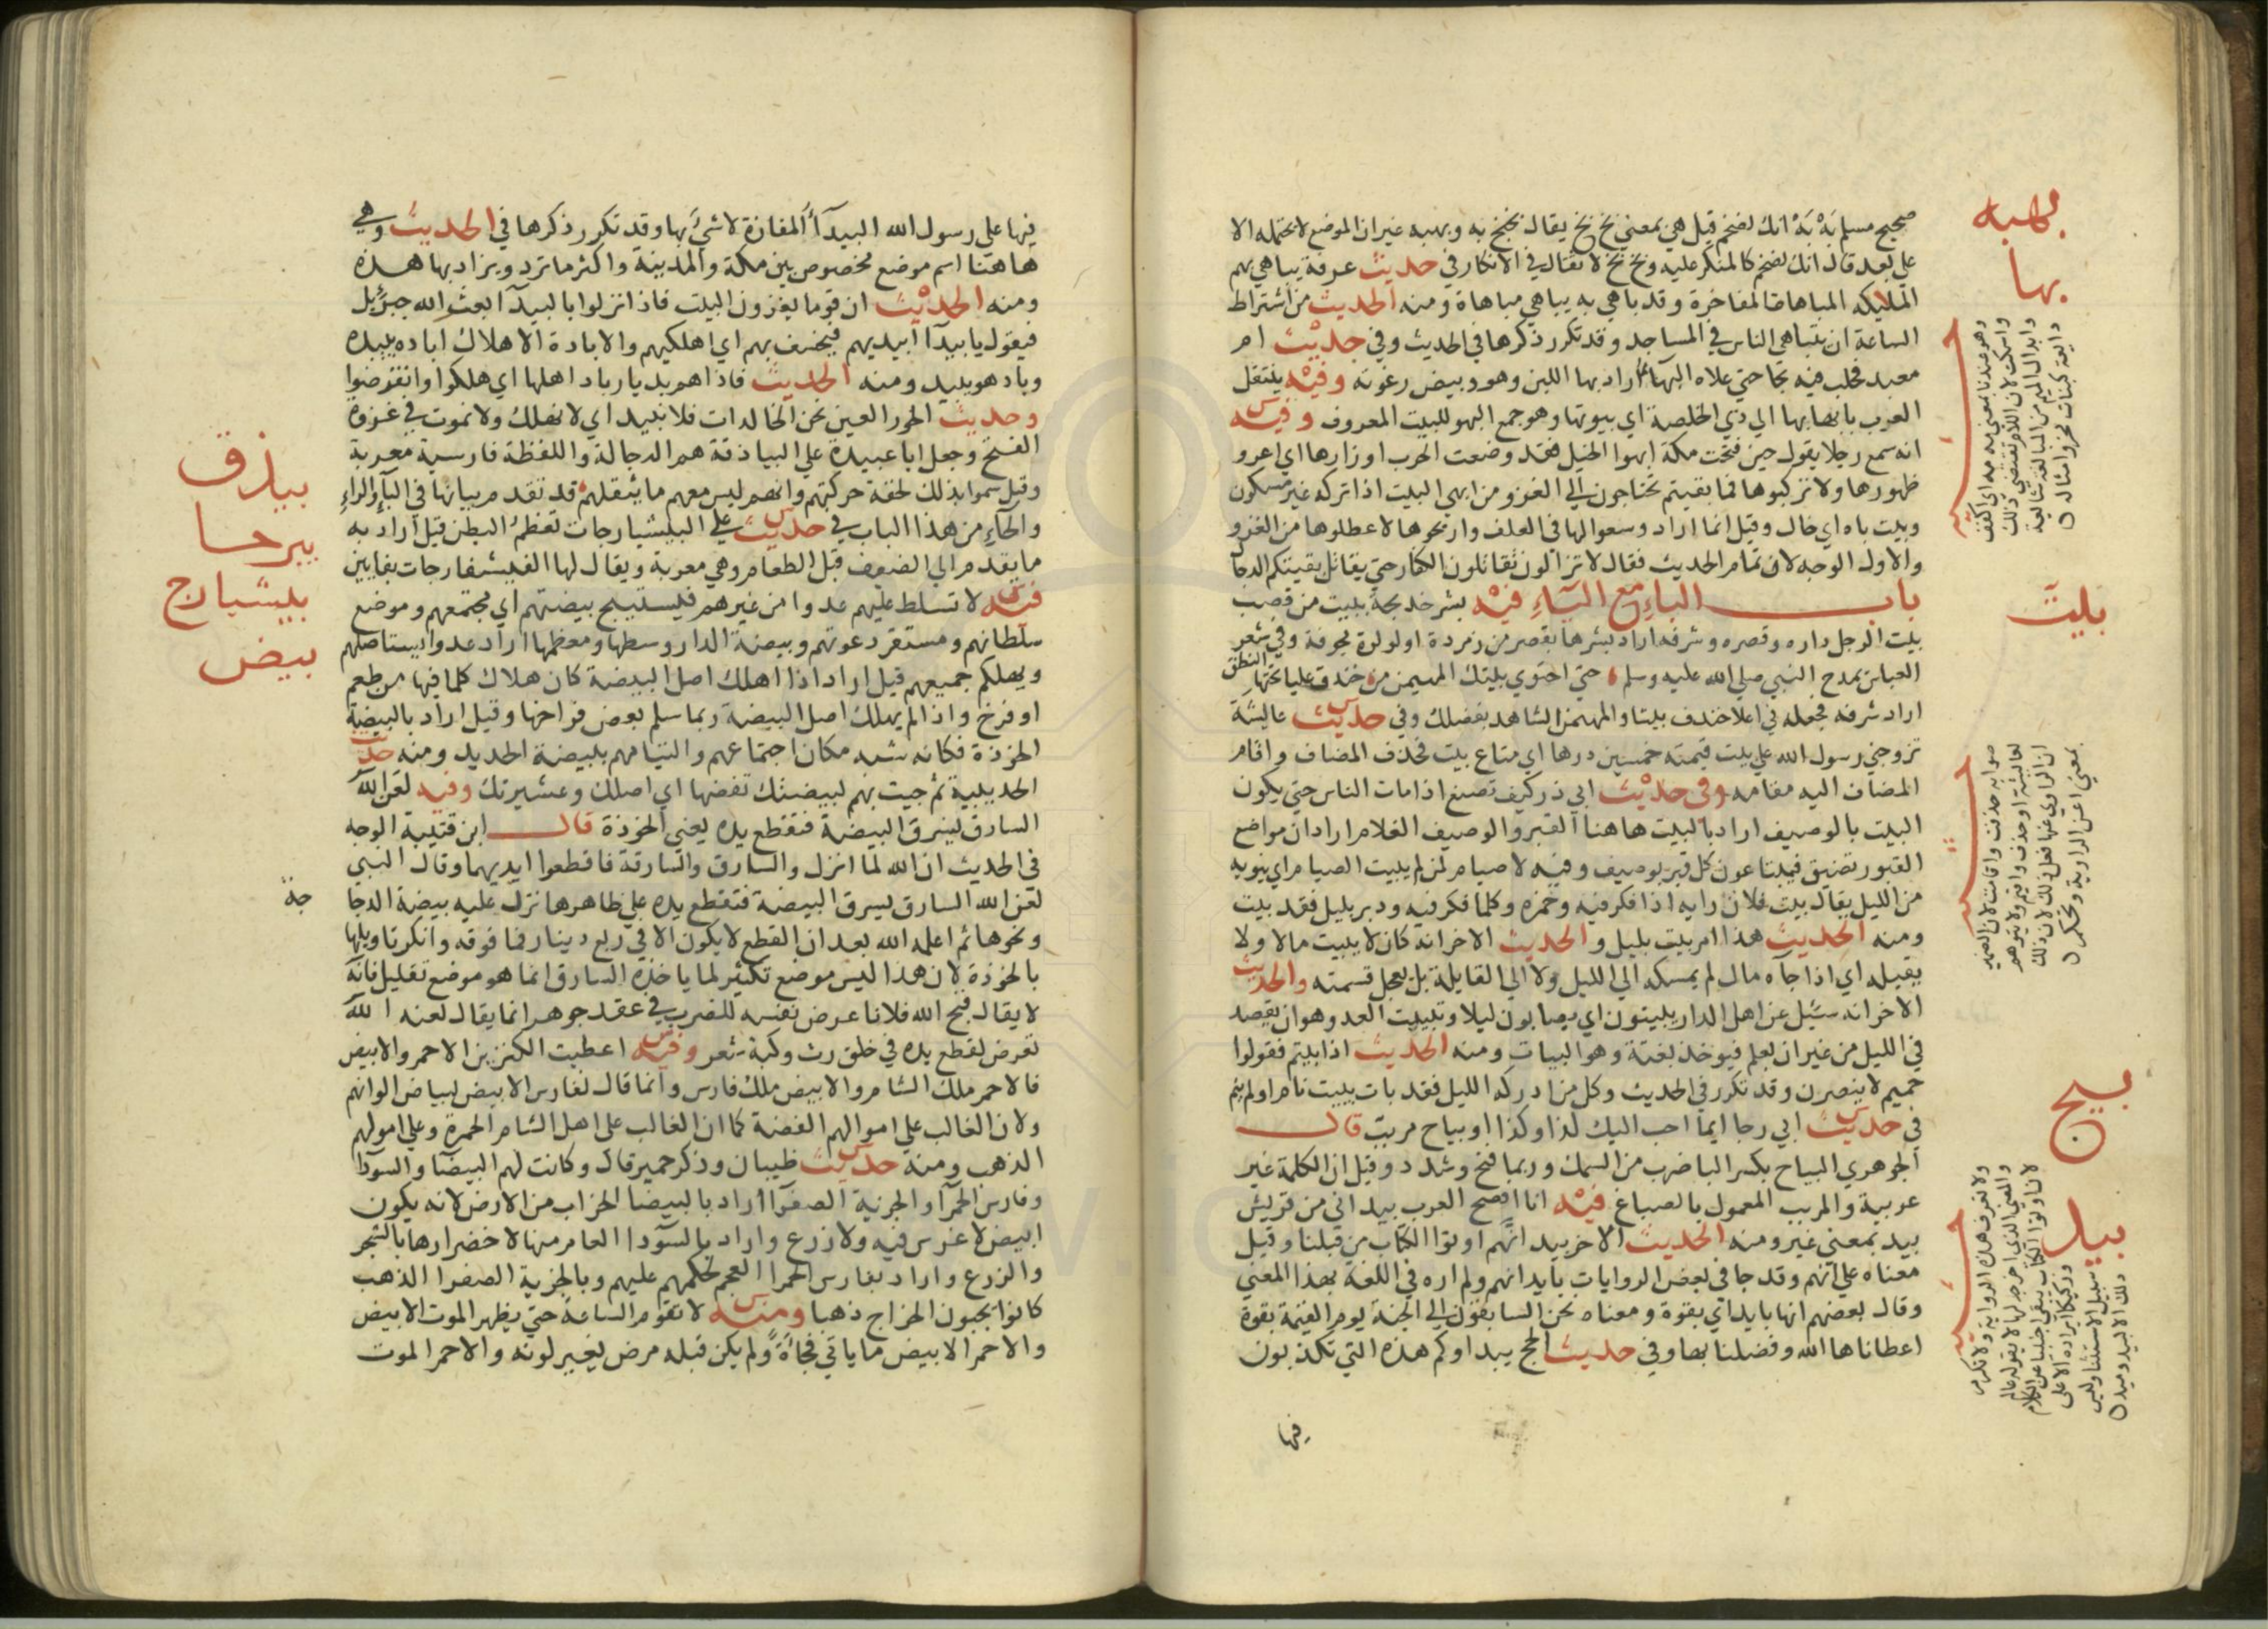 بهبه
صحيح مسلم بَهْ بَهْ انك لضخم قيل هي بمعني بخ بخ يقال بخبخ به وبهبه غير ان الموضع لا يحتمله الا
علي بعد قال انك لضخم كالمنكر عليه وبخ بخ لا تقال في الانكار في حديث عرفة يباهي بهم
بها
المليكه المباهات المفاخرة وقد باهي به يباهي مباهاة ومنه الحديث من اشتراط
الساعة ان يتباهي الناس في المساجد وقد تكرر ذكرها في الحديث وفي حديث ام
معبد فحلب فيه ثجا حتي علاه البهآ اراد بها اللبن وهو وبيض رغوته وفيه ينتقل
العرب بابهايها الي ذي الخلصة اي بيوتها وهو جمع البهو للبيت المعروف وفيه
انه سمع رجلا يقول حين فتحت مكة ابهوا الخيل فقد وضعت الحرب اوزارها اي اعرو
ظهورها ولا تركبوها فما بقيتم تحتاجون الي الغزو من ابهي البيت اذا تركه غير مسكون
وبيت باه اي خال وقيل انما اراد وسعوا لها في العلف واريحوها لا عطلوها من الغزو
والاول الوجه لان تمام الحديث فقال لا تزالون تقاتلون الكفار حتي يقاتل بقيتكم الدجا
باب الباء مع الياء فيه بشر خديجة ببيت من قصب
بيت
بيت الرجل داره وقصره وشرفه اراد بشرها بقصر من زمردة او لولوة مجوفة وفي شعر
العباس يمدح النبي صلي الله عليه وسلم حتي احتوي بيتك المهيمن من خندف عليا تحتها النطق
اراد شرفه فجعله في اعلا خندف بيتا والمهيمن الشاهد بفضلك وفي حديث عايشة
تزوجني رسول الله علي بيت قيمته خمسين درها اي متاع بيت فحذف المضاف واقام
المضاف اليه مقامه وفي حديث ابي ذر كيف تصنع اذا مات الناس حتي يكون
البيت بالوصيف اراد بالبيت هاهنا القبر والوصيف الغلام اراد ان مواضع
القبور تضيق فيبتاعون كل قبر بوصيف وفيه لا صيام لمن لم يبيت الصيام اي ينويه
من الليل يقال بيت فلان رايه اذا فكر فيه وخمره وكلما فكر فيه ودبر بليل فقد بيت
ومنه الحديث هذا امر بيت بليل والحديث الاخر انه كان لا يبيت مالا ولا
يقيله اي اذا جآه مال لم يمسكه الي الليل ولا الي القايلة بل يعجل قسمته والحديث
الاخر انه سئيل عن اهل الدار يبيتون اي يصابون ليلا وتبييت العدو هو ان يقصد
في الليل من غير ان يعلم فيوخذ بغتة وهو البيات ومنه الحديث اذا بيتم فقولوا
حميم لا ينصرن وقد تكرر في الحديث وكل من ادركه الليل فقد بات يبيت نام او لم ينم
بيح
في حديث ابي رجا ايما احب اليك كذا وكذا او بياح مربب قال
الجوهري البياح بكسر الباضرب من السمك وربما فتح وشدد وقيل ان الكلمة غير
عربية والمربب المعمول بالصباغ فيه انا افصح العرب بيد اني من قريش
بيد
بيد بمعني غير ومنه الحديث الاخر بيد انهم اوتوا الكتاب من قبلنا وقيل
معناه علي انهم وقد جا في بعض الروايات بايد انهم ولم اره في اللغة بهذا المعني
وقال بعضهم انها بايد اي بقوة ومعناه نحن السابقون الي الجنة يوم القيمة بقوة
اعطاناها الله وفضلنا بها وفي حديث الحج بيداوكم هذه التي تكذبون
فيها
فيها علي رسول الله البيدآ المفازة لا شيَ بها وقد تكرر ذكرها في الحديث وهي
هاهنا اسم موضع مخصوص بين مكة والمدينة واكثر ما ترد ويراد بها هذه
ومنه الحديث ان قوما يغزون البيت فاذا نزلوا بالبيدآ بعث الله جبرئيل
فيقول يا بيدآ ابيديهم فيخسف بهم اي اهلكيهم والابادة الاهلاك اباده يبيده
وباد هو يبيد ومنه الحديث فاذا هم بديار باد اهلها اي هلكوا وانقرضوا
وحديث الحور العين نحن الخالدات فلا نبيد اي لا نهلك ولا نموت في غزوة
بيذق
الفتح وجعل ابا عبيدة علي البياذقة هم الرجالة واللفظة فارسية معربة
وقيل سموا بذلك لخفة حركتهم وانهم ليس معهم ما يثقلهم قد تقدم بيانها في البآءِ والراءِ
بيرحا
والحآءِ من هذا الباب في حديث علي البيشيارجات تعظم البطن قيل اراد به
بيشيارج
ما يقدم الي الضيوف قبل الطعام وهي معربة ويقال لها الفيشفارجات بفايين
بيض
فيه لا تسلط عليهم عدوا من غيرهم فيستبيح بيضتهم اي مجتمعهم وموضع
سلطانهم ومستقر دعوتهم وبيضة الدار وسطها ومعظمها اراد عدوا يستاصلهم
ويهلكم جميعهم قيل اراد اذا اهلك اصل البيضة كان هلاك كلما فيها من طعم
او فرخ واذا لم يهلك اصل البيضة ربما سلم بعض فراخها وقيل اراد بالبيضة
الخوذة فكانه شبه مكان اجتماعهم والتيامهم ببيضة الحديد ومنه حديث
الحديبية ثم جيت بهم لبيضتك تفضها اي اصلك وعشيرتك وفيه لعن الله
السارق يسرق البيضة فتقطع يده يعني الخوذة قال ابن قتيبة الوجه
في الحديث ان الله لما انزل والسارق والسارقة فاقطعوا ايديهما وقال النبي
لعن الله السارق يسرق البيضة فتقطع يده علي ظاهرها نزل عليه بيضة الدجا
جة
ونحوها ثم اعلمه الله بعد ان القطع لا يكون الا في ربع دينار فما فوقه وانكر تاويلها
بالخوذة لان هذا ليس موضع تكثير لما ياخذه السارق انما هو موضع تقليل فانه
لا يقال قبح الله فلانا عرض نفسه للضرب في عقد جوهر انما يقال لعنه الله
تعرض لقطع يده في خلق رث وكبة شعر وفيه اعطيت الكنزين الاحمر والابيض
فالاحمر ملك الشام والابيض ملك فارس وانما قال لفارس الابيض لبياض الوانهم
ولان الغالب علي اموالهم الفضة كما ان الغالب علي اهل الشام الحمرة وعلي امولهم
الذهب ومنه حديث ظبيان وذكر حمير قال وكانت لهم البيضا والسودا
وفارس الحمرآ والجزية الصفرآ اراد بالبيضا الخراب من الارض لانه يكون
ابيض لا غرس فيه ولا زرع واراد بالسودا العامر منها لاخضرارها بالشجر
والزرع واراد بفارس الحمرا العجم لحكمهم عليهم وبالجزية الصفرا الذهب
كانوا يجبون الخراج ذهبا ومنه لا تقوم الساعة حتي يظهر الموت الابيض
والاحمر الابيض ما ياتي فجأةً ولم يكن قبله مرض يغيير لونه والاحمر الموت